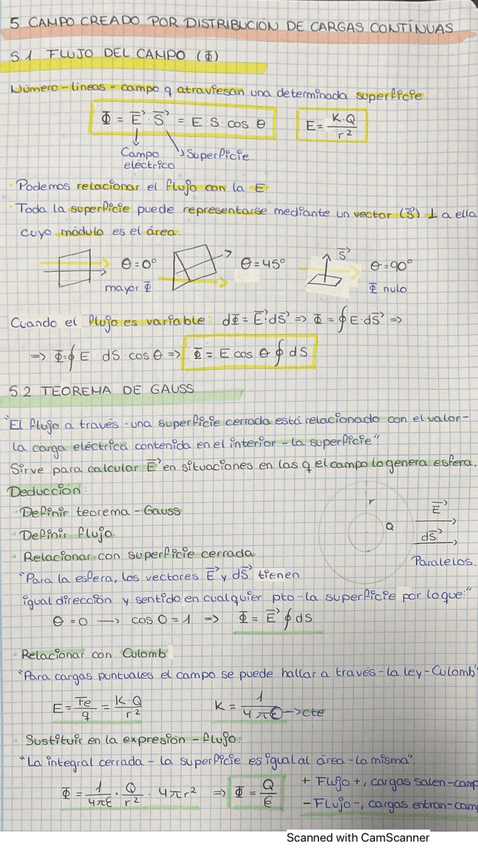 5 CAMPO CREADO POR DISTRIBUCION DE CARGAS CONTÍNUAS
5.1 FLUJO DEL CAMPO (Φ)
Número-líneas-campo q atraviesan una determinada superficie
Φ = E⃗ S⃗ = E S cos θ
E = K·Q / r²
Campo eléctrico
Superficie
Podemos relacionar el flujo con la E
Toda la superficie puede representarse mediante un vector (S⃗) ⊥ a ella
cuyo módulo es el área
θ=0°
mayor Φ
θ=45°
S⃗
θ=90°
Φ nulo
Cuando el flujo es variable: dΦ = E⃗·dS⃗ => Φ = ∮ E·dS⃗ =>
=> Φ=∮ E dS cos θ => Φ = E cos θ ∮ dS
5.2 TEOREMA DE GAUSS
"El flujo a través-una superficie cerrada está relacionado con el valor-
la carga eléctrica contenida en el interior-la superficie"
Sirve para calcular E⃗ en situaciones en las q el campo lo genera esfera.
Deducción:
· Definir teorema-Gauss
· Definir flujo
· Relacionar con superficie cerrada
r
Q
E⃗
dS⃗
Paralelos
"Para la esfera, los vectores E⃗ y dS⃗ tienen
igual dirección y sentido en cualquier pto-la superficie por lo que:"
θ=0 → cos 0=1 => Φ = E⃗ ∮ dS
· Relacionar con Culomb
"Para cargas puntuales el campo se puede hallar a través-la ley-Culomb"
E = Fe / q = K·Q / r²
K = 1 / 4πϵ → cte
· Sustituir en la expresión-flujo
"La integral cerrada-la superficie es igual al área-la misma"
Φ = 1 / 4πϵ · Q / r² · 4πr² => Φ = Q / ϵ
+ Flujo +, cargas salen-camp
- Flujo -, cargas entran-cam
Scanned with CamScanner